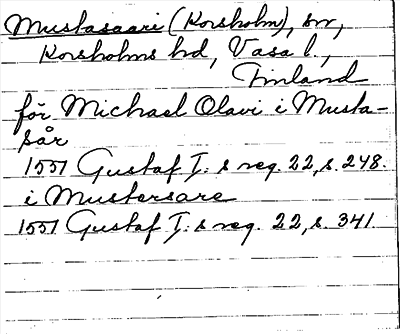 Mustasaari (Korsholm), sn,
Korsholms hd, Vasa l.,
Finland
för Michael Olavi i Musta-
sår
1551 Gustaf I:s reg. 22, s. 248.
i Mustersare
1551 Gustaf I:s reg. 22, s. 341.